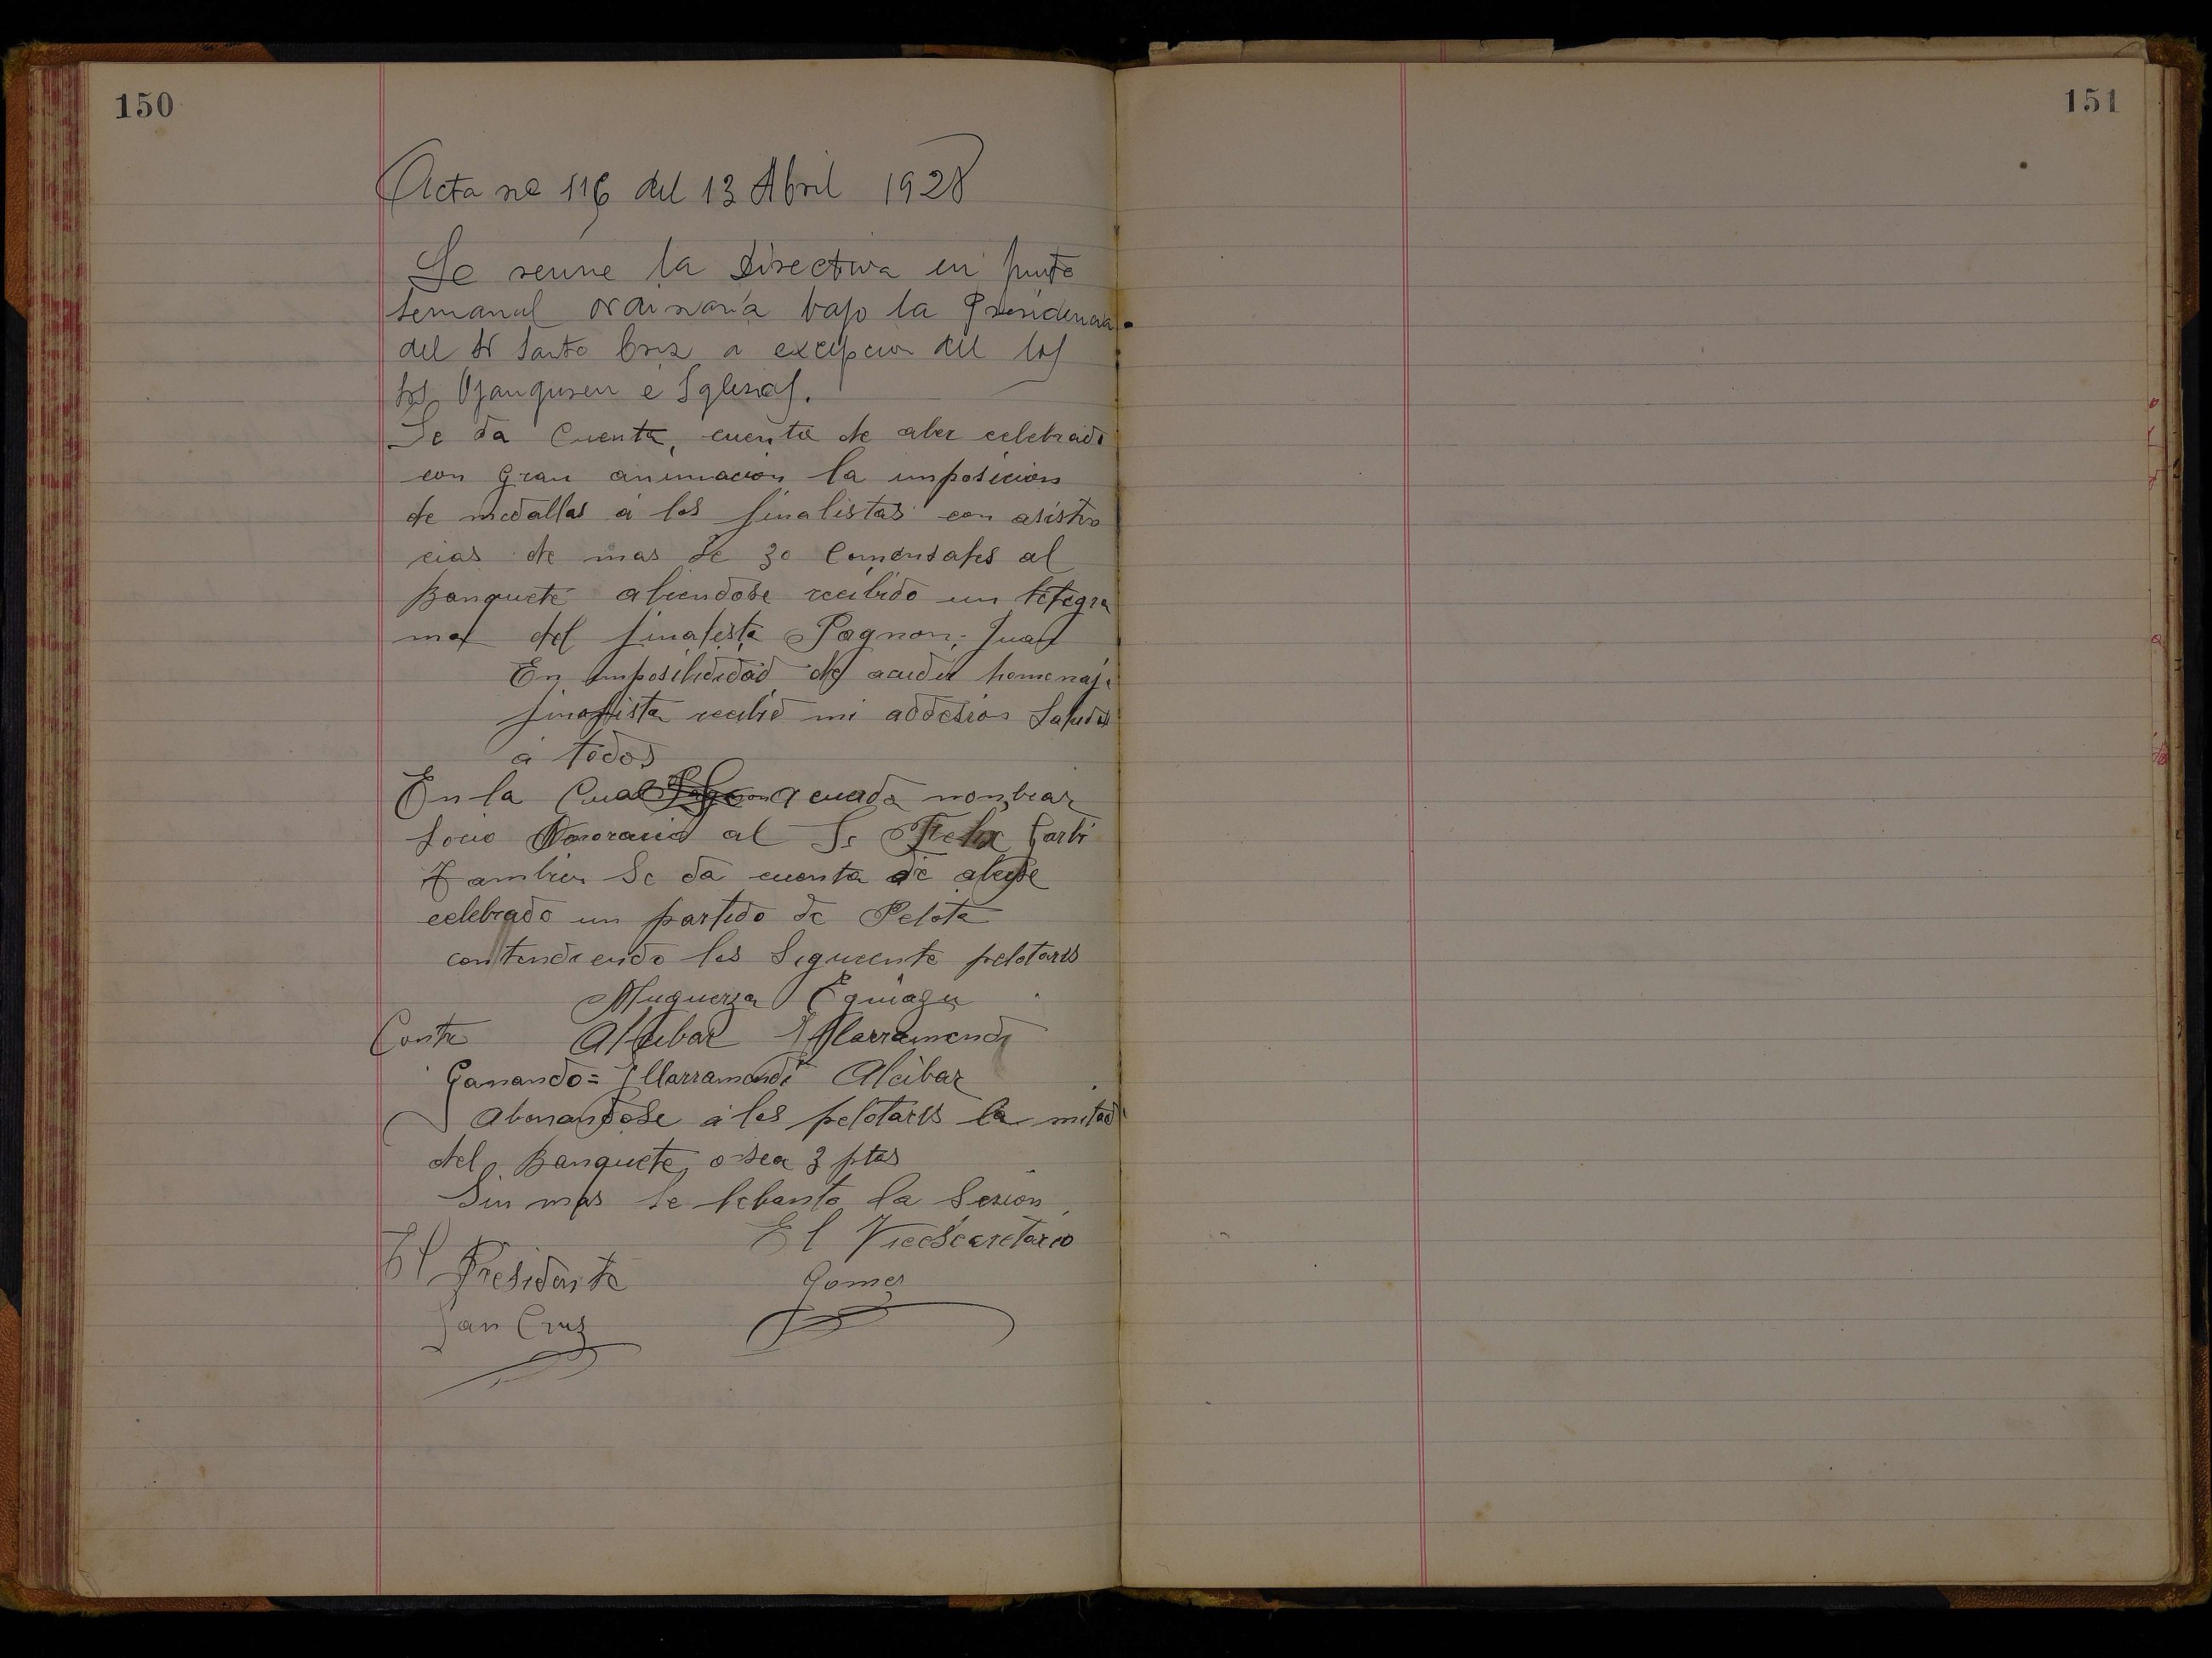 150
Acta nº 116 del 13 Abril 1928
Se reune la Directiva en junta
semanal ordinaria bajo la Presidencia
del Sr Santo Cruz a excepcion del los
Srs Ojanguren e Iglesias.
Se da Cuenta, cuenta de aber celebrado
con gran animacion la imposicion
de medallas a los finalistas con asisten
cias de mas de 30 Comensales al
Banquete abiendose recibido un telegra
ma del finalista Pagnon; Juan
En imposibilidad de acudir homenaje
finalista recibid mi addesion Saludos
a todos
En la Cual acuerda nombrar
Socio Honorario al Sr Felix
Tambien Se da cuenta de aberse
celebrado un partido de Pelota
contendiendo los Siguiente pelotaris
Muguerza Eguiazu
Contra Alcibar Illarramendi
Ganando= Illarramendi Alcibar
Abonandose a los pelotaris la mitad
del Banquete, o sea 3 ptas
Sin mas se lebanto la Sesion
El Vicesecretario
El Presidente
Gomes
San Cruz
151